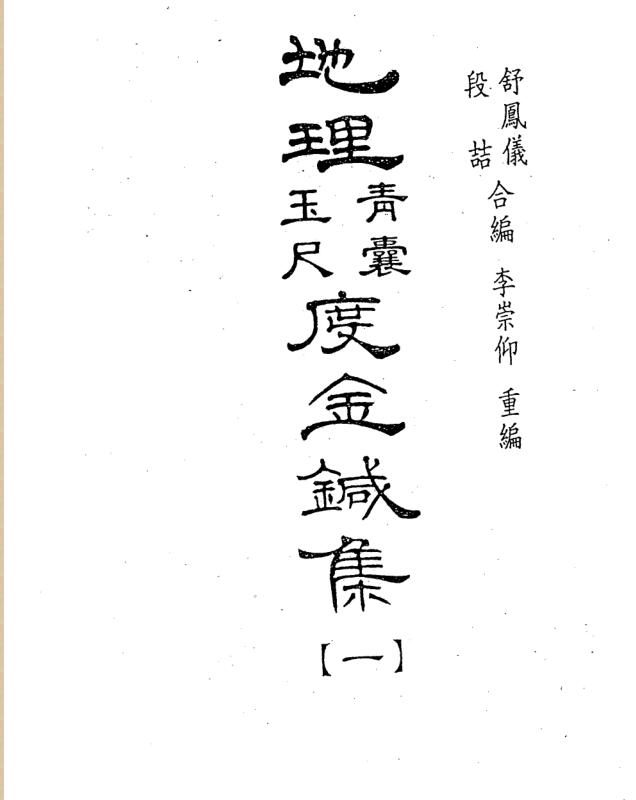 舒鳳儀
段喆
合編 李崇仰 重編
地理
青囊
玉尺
度金鍼集
【一】